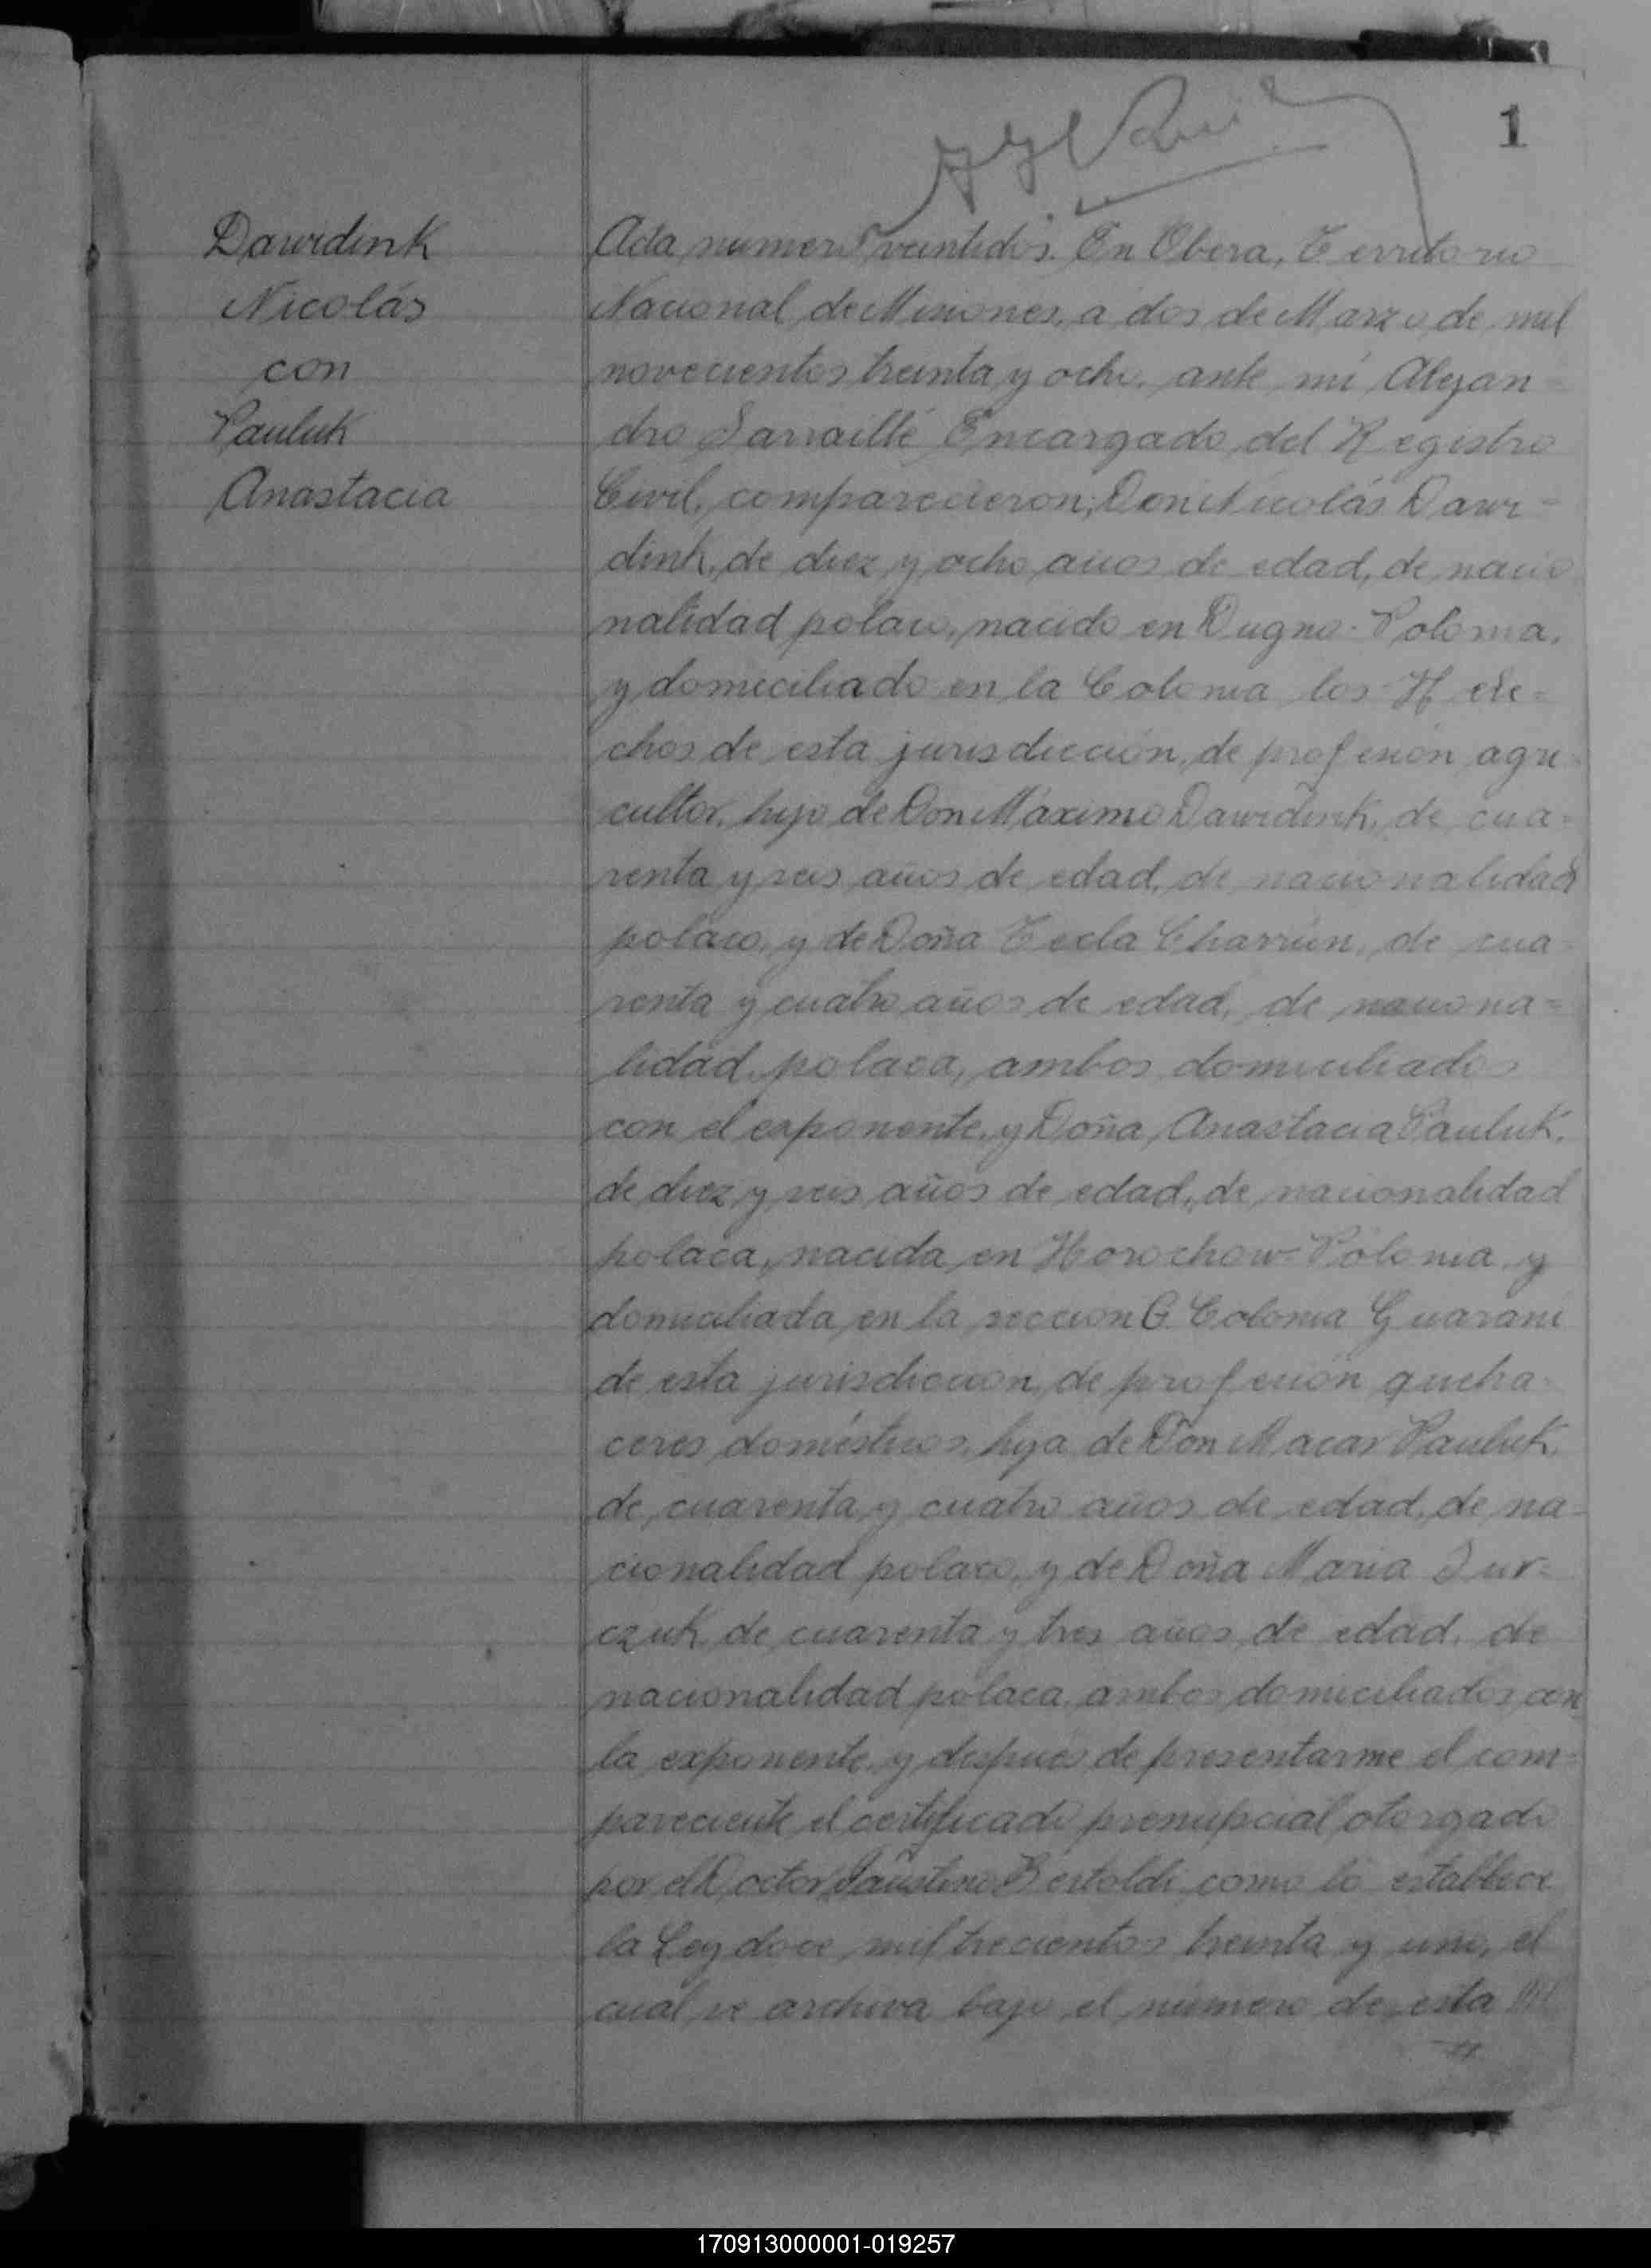 1
Dawidink
Nicolás
con
Pauluk
Anastacia
Acta numero veintidos. En Obera, Territorio
Nacional de Misiones, a dos de Marzo de mil
novecientos treinta y ocho, ante mi Alejan=
dro Sarraillé Encargado del Registro
Civil, comparecieron; Don Nicolás Dawi=
dink, de diez y ocho años de edad, de nacio
nalidad polaco, nacido en Dugno-Polonia,
y domiciliado en la Colonia los Hele=
chos de esta jurisdicción, de profesión agri=
cultor, hijo de Don Máximo Dawidink, de cua=
renta y seis años de edad, de nacionalidad
polaco, y de Doña Tecla Charrún, de cua
renta y cuatro años de edad, de naciona=
lidad polaca, ambos domiciliados
con el exponente, y Doña Anastacia Pauluk,
de diez y seis años de edad, de nacionalidad
polaca, nacida en Horochow-Polonia, y
domiciliada en la seccion G. Colonia Guarani
de esta jurisdiccion, de profesión queha=
ceres domésticos, hija de Don Macar Pauluk,
de cuarenta y cuatro años de edad, de na-
cionalidad polaco, y de Doña Maria Jur=
czuk, de cuarenta y tres años de edad, de
nacionalidad polaca, ambos domiciliados con
la exponente, y después de presentarme el com=
pareciente el certificado prenupcial otorgado
por el Doctor Faustino Bertoldi, como lo establece
la Ley doce mil trecientos treinta y uno, el
cual se archiva bajo el número de esta
170913000001-019257